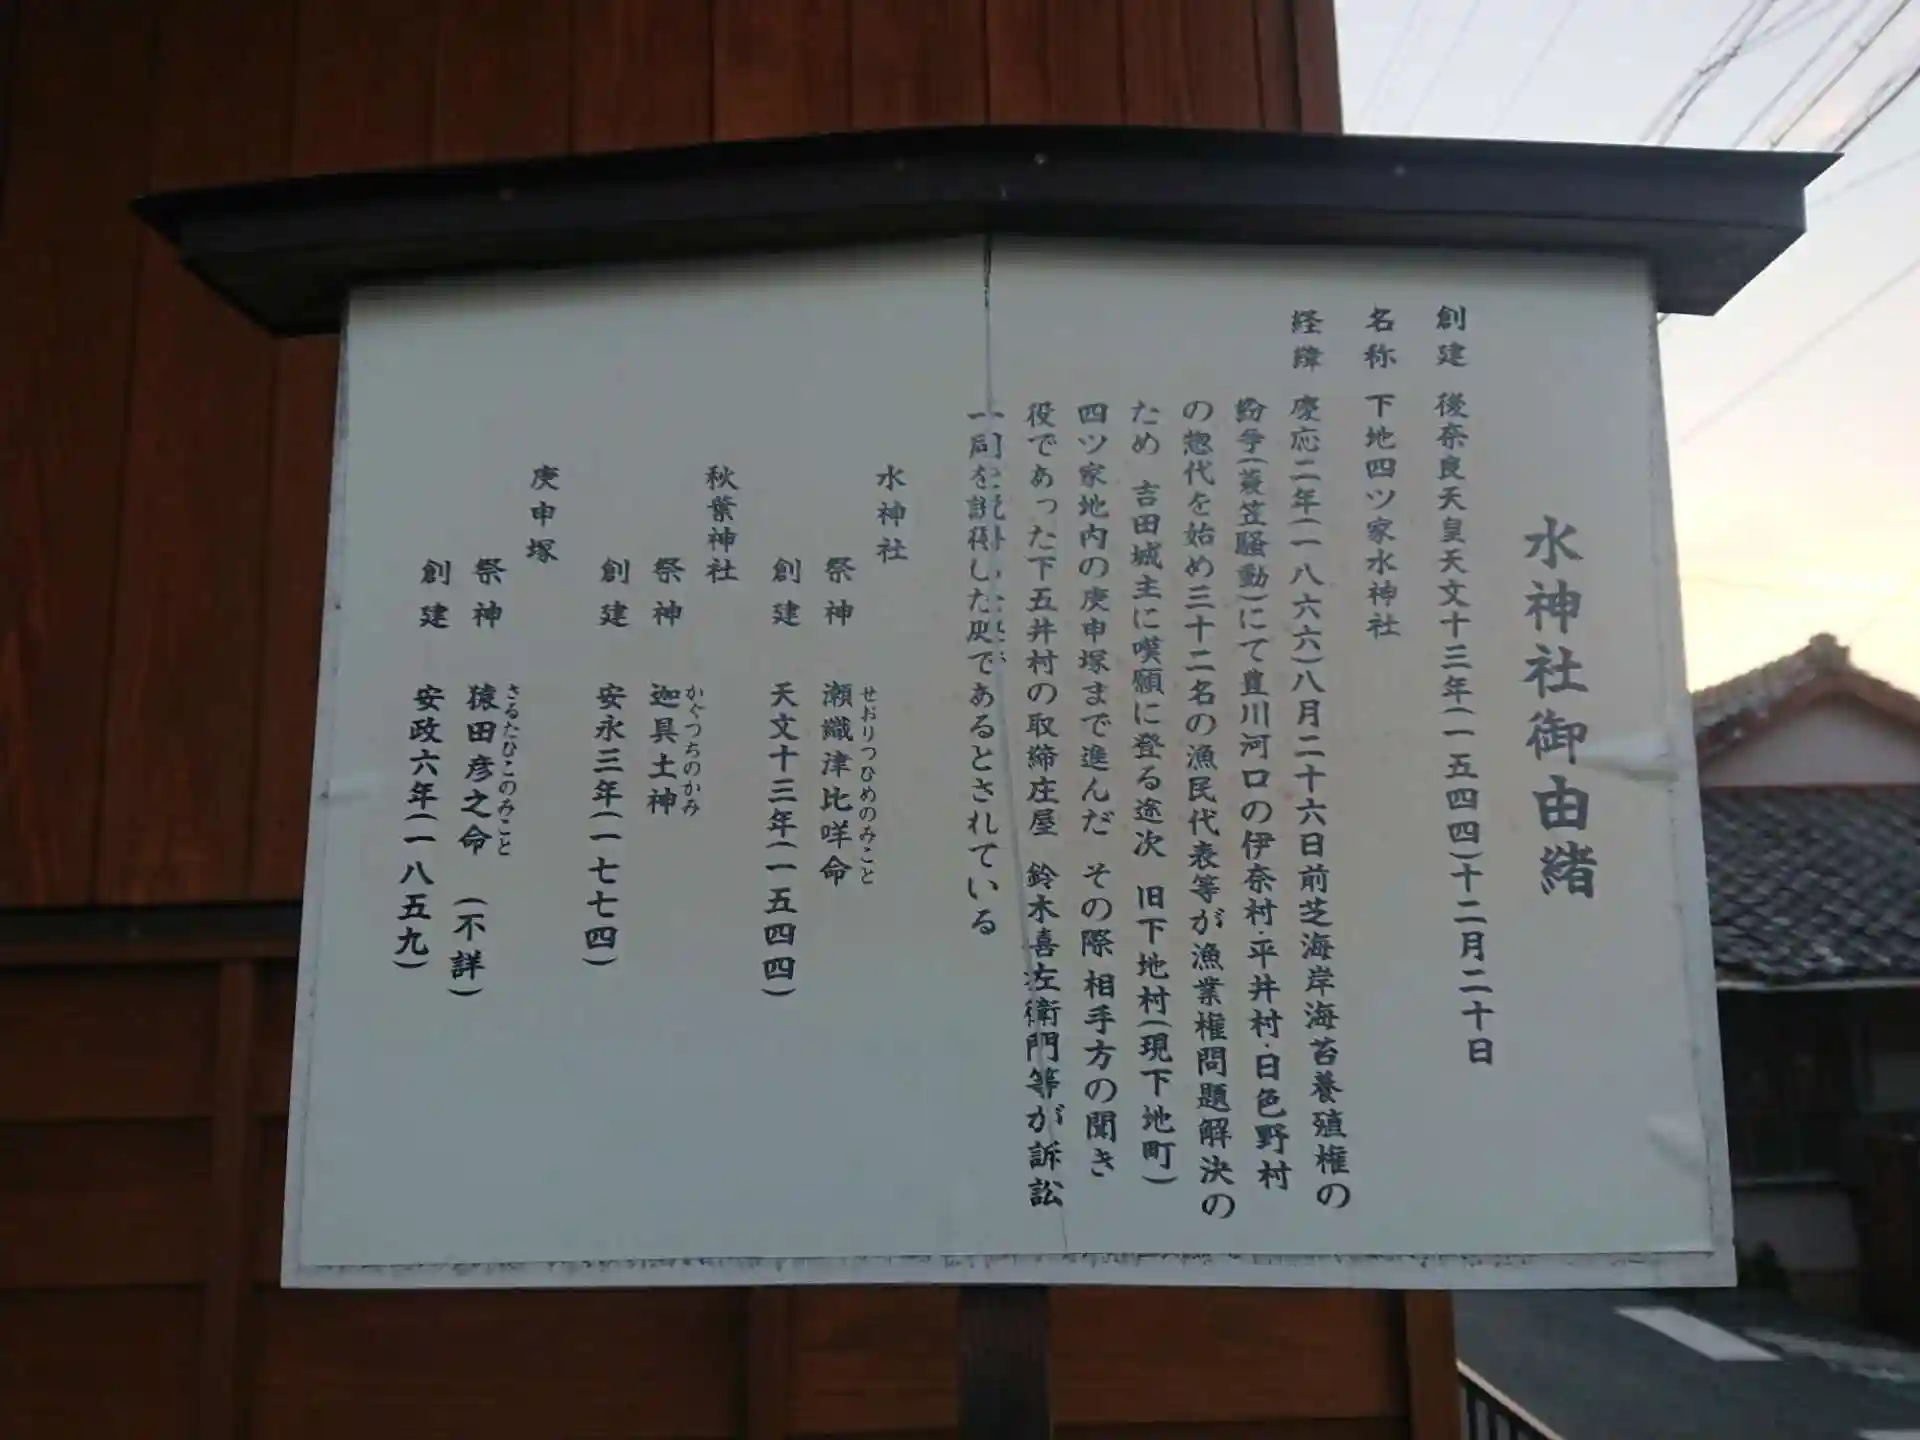 水神社御由緒
創建 後奈良天皇天文十三年(一五四四)十二月二十日
名称 下地四ツ家水神社
経緯 慶応二年(一八六六)八月二十六日前芝海岸海苔養殖権の
紛争(蓑笠騒動)にて豊川河口の伊奈村・平井村・日色野村
の惣代を始め三十二名の漁民代表等が漁業権問題解決の
ため 吉田城主に嘆願に登る途次 旧下地村(現下地町)
四ツ家地内の庚申塚まで進んだ その際 相手方の聞き
役であった下五井村の取締庄屋 鈴木喜左衛門等が訴訟
一同を説得した処であるとされている
水神社
祭神 瀬織津比咩命
せおりつひめのみこと
創建 天文十三年(一五四四)
秋葉神社
祭神 迦具土神
かぐつちのかみ
創建 安永三年(一七七四)
庚申塚
祭神 猿田彦之命 (不詳)
さるたひこのみこと
創建 安政六年(一八五九)